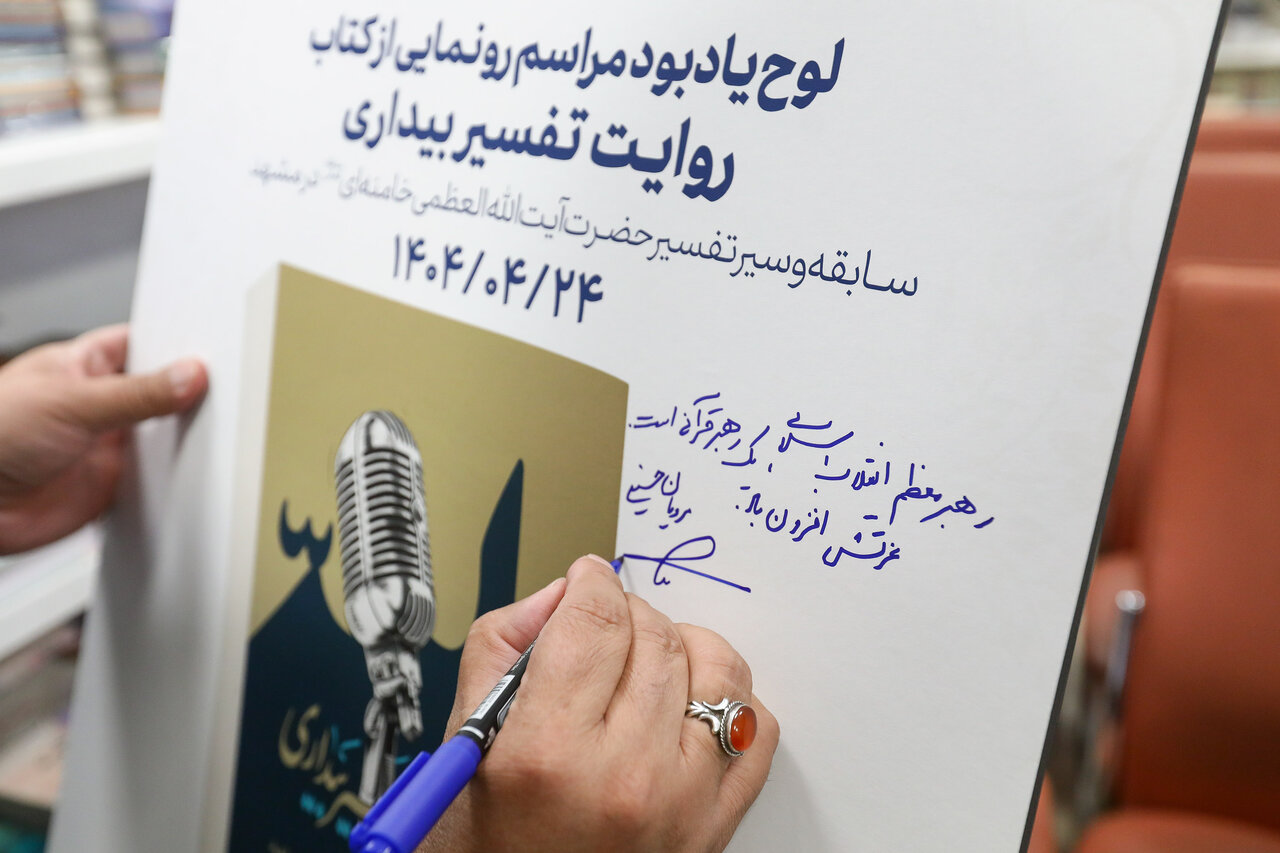 لوح یادبود مراسم رونمایی از کتاب
روایت تفسیر بیداری
سابقه و سیر تفسیر حضرت آیت الله العظمی خامنه‌ای در مشهد
۱۴۰۴/۰۴/۲۴
رهبر معظم انقلاب اسلامی، یک رهبر قرآنی است.
عزتش افزون باد.
حسینی
بیداری